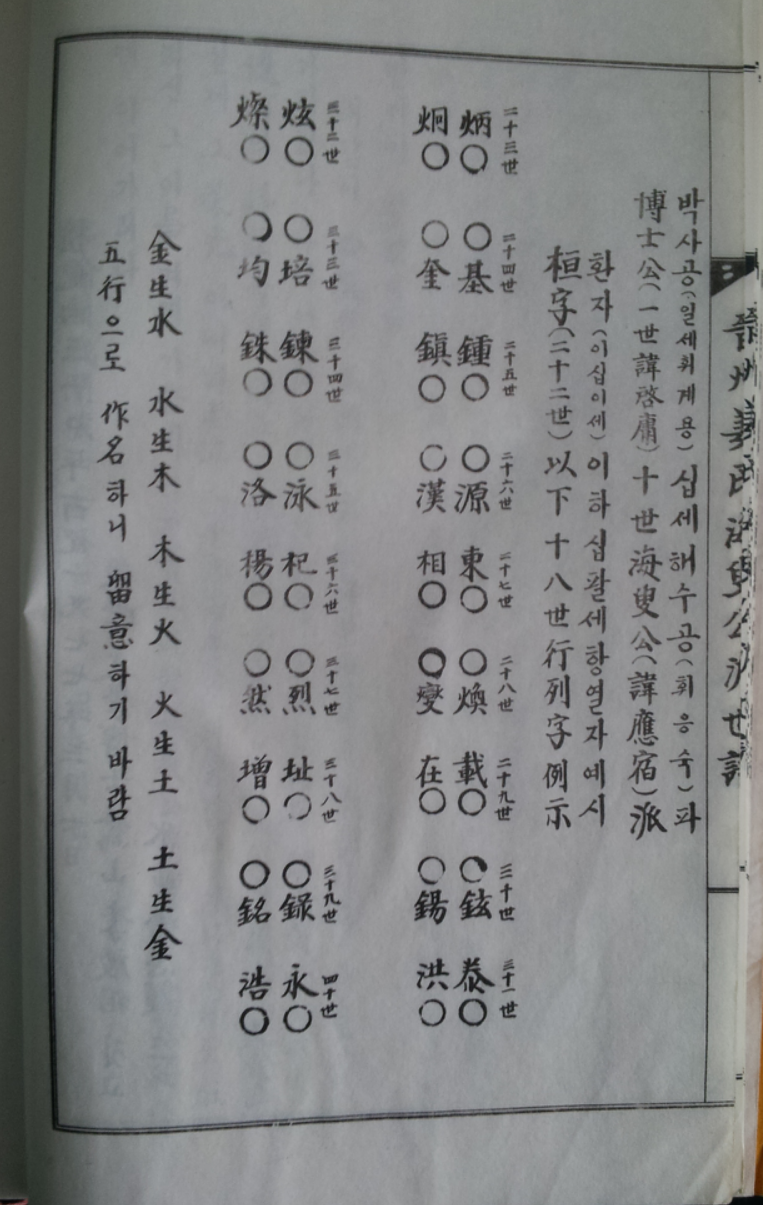 晉州姜氏海叟公派世譜
박사공(일세휘계용)십세해수공(휘응숙)파
博士公(一世諱啓庸)十世海叟公(諱應宿)派
환자(이십이세)이하십팔세항열자예시
桓字(二十二世)以下十八世行列字例示
二十三世 二十四世 二十五世 二十六世 二十七世 二十八世 二十九世 三十世 三十一世
炳○ ○基 鍾○ ○源 東○ ○煥 載○ ○鉉 泰○
炯○ ○奎 鎭○ ○漢 相○ ○燮 在○ ○錫 洪○
三十二世 三十三世 三十四世 三十五世 三十六世 三十七世 三十八世 三十九世 四十世
炫○ ○培 鍊○ ○泳 杞○ ○烈 址○ ○錄 永○
燦○ ○均 銖○ ○洛 楊○ ○然 增○ ○銘 浩○
金生水 水生木 木生火 火生土 土生金
五行으로 作名하니 留意하기 바람